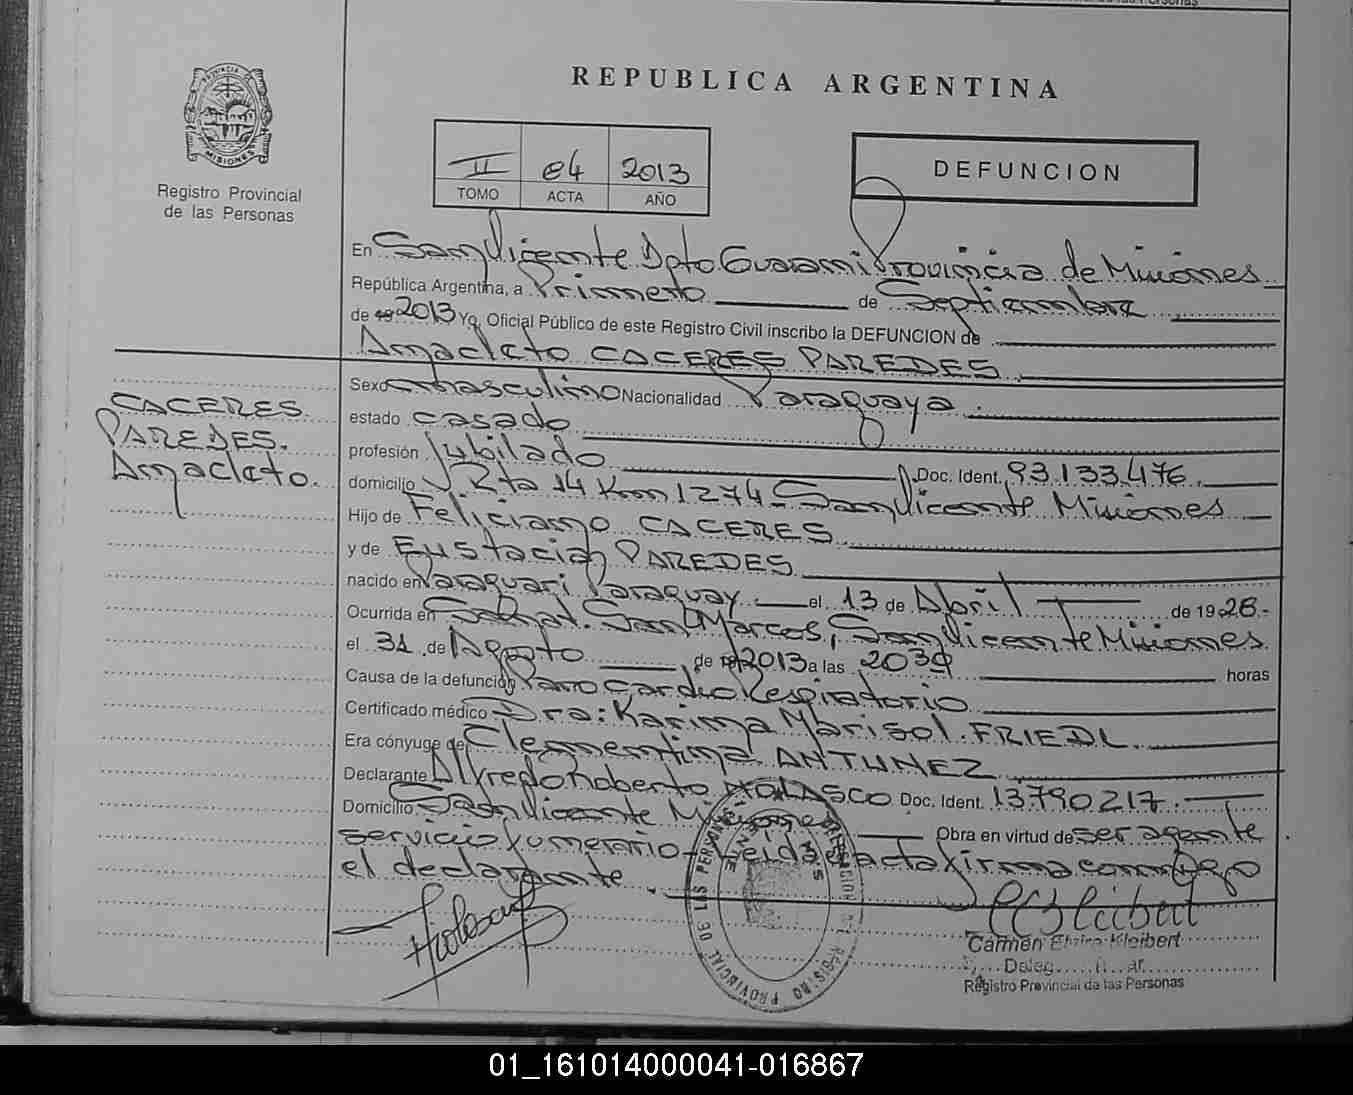 REPUBLICA ARGENTINA
PROVINCIA DE
MISIONES
Registro Provincial
de las Personas
II 84 2013
TOMO ACTA AÑO
DEFUNCION
En San Vicente Dpto Guaraní Provincia de Misiones
República Argentina, a Primero de Septiembre
de 2013 Yo, Oficial Público de este Registro Civil inscribo la DEFUNCION de
Anacleto CACERES PAREDES
CACERES
PAREDES.
Anacleto.
Sexo masculino Nacionalidad Paraguaya.
estado casado
profesión Jubilado Doc. Ident. 93.133.476.
domicilio Rta 14 Km 1274 - San Vicente Misiones
Hijo de Feliciano CACERES
y de Eustacia PAREDES
nacido en Paraguari Paraguay el 13 de Abril de 1926.-
Ocurrida en Sanat. San Marcos, San Vicente Misiones
el 31 de Agosto de 19 2013 a las 2030 horas
Causa de la defunción Paro Cardio Respiratorio
Certificado médico Dra: Karina Marisol FRIEDL
Era cónyuge de Clementina ANTUNEZ
Declarante Alfredo Roberto NOLASCO Doc. Ident. 13790217.
Domicilio San Vicente Misiones Obra en virtud de ser agente
servicio funerario - Leida el acta firma conmigo
el declarante.
REGISTRO PROVINCIAL DE LAS PERSONAS
Carmen Elvira Kleibert
Registro Provincial de las Personas
01_161014000041-016867